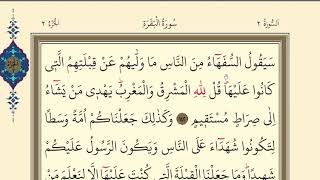 السورة ٢ سورة البقرة الجزء ٢
سَيَقُولُ السُّفَهَٓاءُ مِنَ النَّاسِ مَا وَلّٰيهُمْ عَنْ قِبْلَتِهِمُ الَّتٖى
كَانُوا عَلَيْهَاۜ قُلْ لِلّٰهِ الْمَشْرِقُ وَالْمَغْرِبُۜ يَهْدٖى مَنْ يَشَٓاءُ
اِلٰى صِرَاطٍ مُسْتَقٖيمٍ وَكَذٰلِكَ جَعَلْنَاكُمْ اُمَّةً وَسَطًا
لِتَكُونُوا شُهَدَٓاءَ عَلَى النَّاسِ وَيَكُونَ الرَّسُولُ عَلَيْكُمْ
شَهٖيدًاۜ وَمَا جَعَلْنَا الْقِبْلَةَ الَّتٖى كُنْتَ عَلَيْهَٓا اِلَّا لِنَعْلَمَ مَنْ